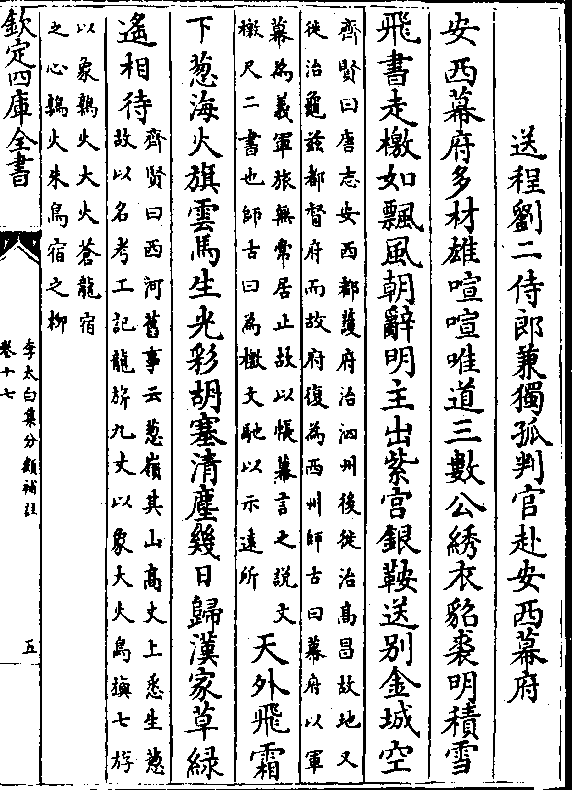 送程劉二侍郎兼獨孤判官赴安西幕府
安西幕府多材雄喧喧唯道三數公綉衣貂裘明積雪
飛書走檄如飄風朝辭明主出紫宮銀鞍送別金城空
齊賢曰唐志安西都䕶府治泗州後徙治髙昌故地又
徙治龜兹都督府而故府復為西州師古曰幕府以軍
幕為義軍旅無常居止故以帳幕言之説文
檄尺二書也師古曰為檄文馳以示逺所
天外飛霜
下葱海火旗雲馬生光彩胡塞清塵幾日歸漢家草緑
遙相待
齊賢曰西河舊事云葱嶺其山髙丈上悉生葱
故以名考工記龍旂九丈以象大火鳥旟七斿
以象鶉火大火蒼龍宿
之心鶉火朱鳥宿之柳
欽定四庫全書
李太白集分類補註
卷十七
五